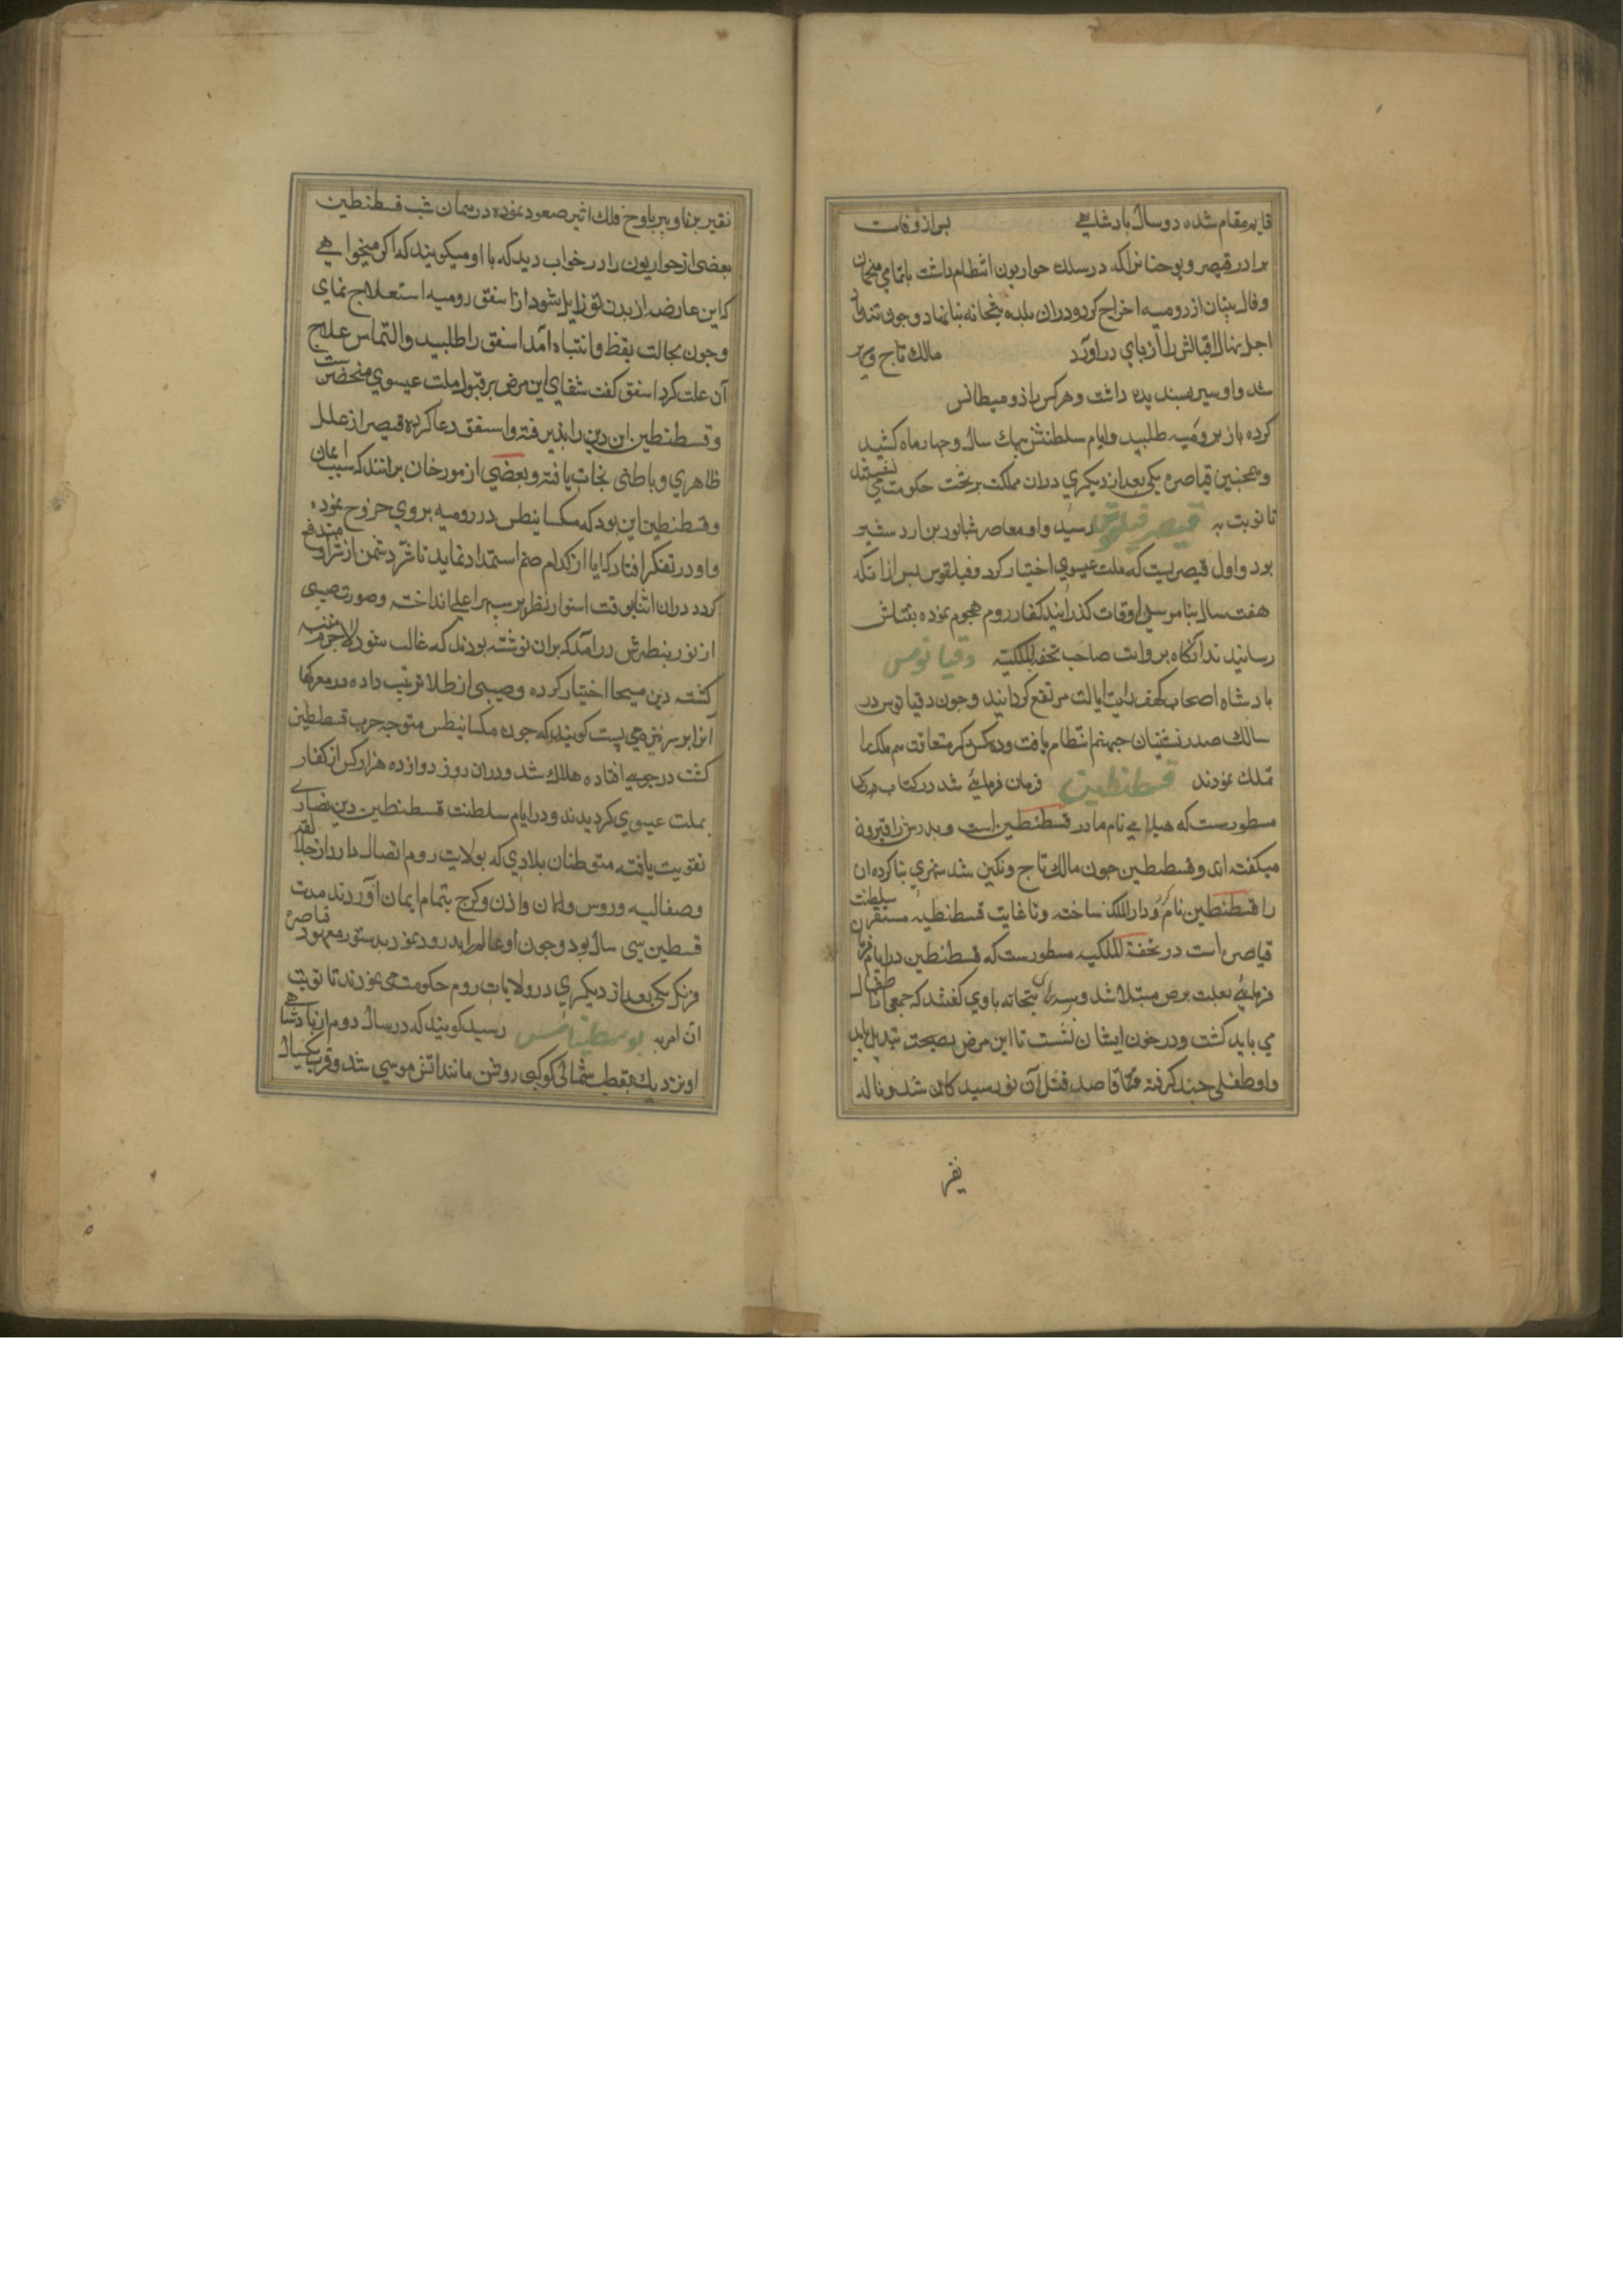 قایم مقام شده دو سال بادشاهی بس از وفات
برادر قیصر و یوحنا نرا که در سلک حواریون انتظام داشت با تمامی منجمان
و فال بینان از رومیه اخراج کرد و دران بلده بتخانه بنا نهاد و چون تند باد
اجل نهال اقبالش را از پای دراورد مالک تاج و سریر
شد و او سیر بسندیده داشت و هرکس را ذومیطانس
کرده باز برومیه طلبید و ایام سلطنتش بیک سال و چهار ماه کشید
و همچنین قیاصره یکی بعد از دیکری دران مملکت بر تخت حکومت می نشستند
تا نوبت به قیصر فیلقوس رسید و او معاصر شابور بن اردشیر
بود و اول قیصریست که ملت عیسوی اختیار کرد و فیلقوس بس ازانکه
هفت سال بناموس اوقات کذرانید کفار روم هجوم نموده بقتلش
رسانیدند انکاه بروایت صاحب تحفه الملکیه دقیانوس
بادشاه اصحاب کهف رایت ایالت مرتفع کردانید و چون دقیانوس در
سالک صدر نشینان جهنم انتظام یافت و ده کس دیکر متعاقب هم ملک را
تملک نمودند قسطنطین فرمان فرمای شد در کتاب مذکور
مسطورست که هیلای نام مادر قسطنطین است و بدرش را قیرون
میکفته اند و قسطنطین چون مالک تاج و نکین شد شهری بنا کرده ان
را قسطنطین نام کرد و دار الملک ساخته و تا غایت قسطنطیه مستقر سلطنت
قیاصره است در تحفة الملکیه مسطورست که قسطنطین در ایام فرمان
فرمای بعلت برص مبتلا شد و سدنه بتخانه با وی کفتند که جمعی اطفال
می باید کشت و در خون ایشان نشست تا این مرض بصحت تبدیل یابد
و او طفلی چند کرفته قاصد قتل آن نورسیدکان شد و ناله
نفیر
نفیر برنا و بیر باوج فلک اثیر صعود نموده در همان شب قسطنطین
بعضی از حواریون را در خواب دید که با او میکویند که اکر میخواهی
که این عارضه از بدن تو زایل شود از اسقف رومیه استعلاج نمای
و چون بحالت یقظ و انتباه آمد اسقف را طلبید و التماس علاج
آن علت کرد اسقف کفت شفای این مرض بر قبول ملت عیسوی منحصرست
و قسطنطین این دین را بذیرفته و اسقف دعا کرده قیصر از علل
ظاهری و باطنی نجات یافته و بعضی از مورخان برانند که سبب ایمان
قسطنطین این بود که مکسانیطس در رومیه بر وی خروج نموده
و او در تفکر افتاد که ایا از کدام صنم استمداد نماید تا شر دشمن از او مندفع
کردد دران اثنا بوقت استوا نظر بر سبهر اعلی انداخته و صورت صلیبی
از نور بنظرش درامد که بران نوشته بودند که غالب شو لاجرم متنبه
کشته دین مسیحا اختیار کرده و صلیبی از طلا ترتیب داده در معرکها
آنرا بر سر نیزه می بست کویند که چون مکسانیطس متوجه حرب قسطنطین
کشت در جویی افتاده هلاک شد و دران روز دوازده هزار کس از کفار
بملت عیسوی کردیدند و در ایام سلطنت قسطنطین دین نصاری
تقویت یافته متوطنان بلادی که بولایت روم اتصال دارد از جمله
و صقالیه و روس و الان و ارمن و کرج بتمام ایمان آوردند مدت
قسطنطین سی سال بود و چون او عالم را بدرود نمود بدستور معهود قیاصره
فرنک یکی بعد از دیکری در ولایات روم حکومت می نمودند تا نوبت
ان امر به یوسطینانس رسید کویند که در سال دوم از بادشاهی
او نزدیک بقطب شمالی کوکبی روشن مانند اتش موسی شد و قرب یکسال